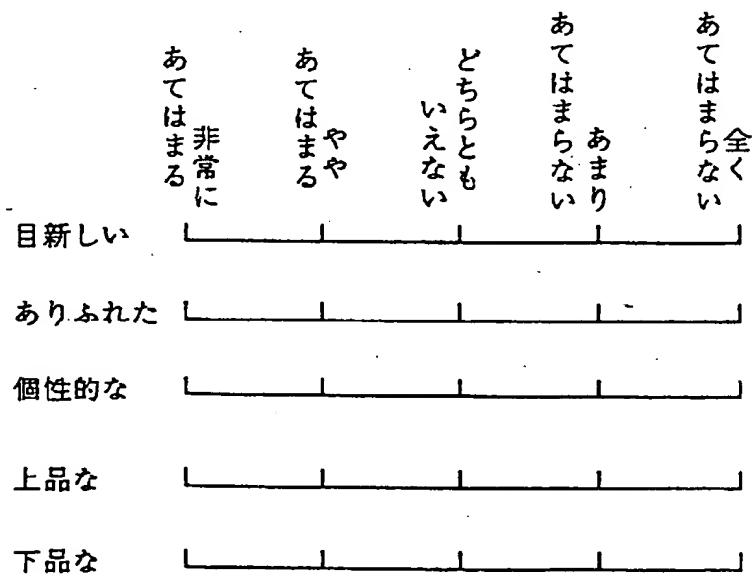 非常に
あてはまる
やや
あてはまる
どちらとも
いえない
あまり
あてはまらない
全く
あてはまらない
目新しい
ありふれた
個性的な
上品な
下品な